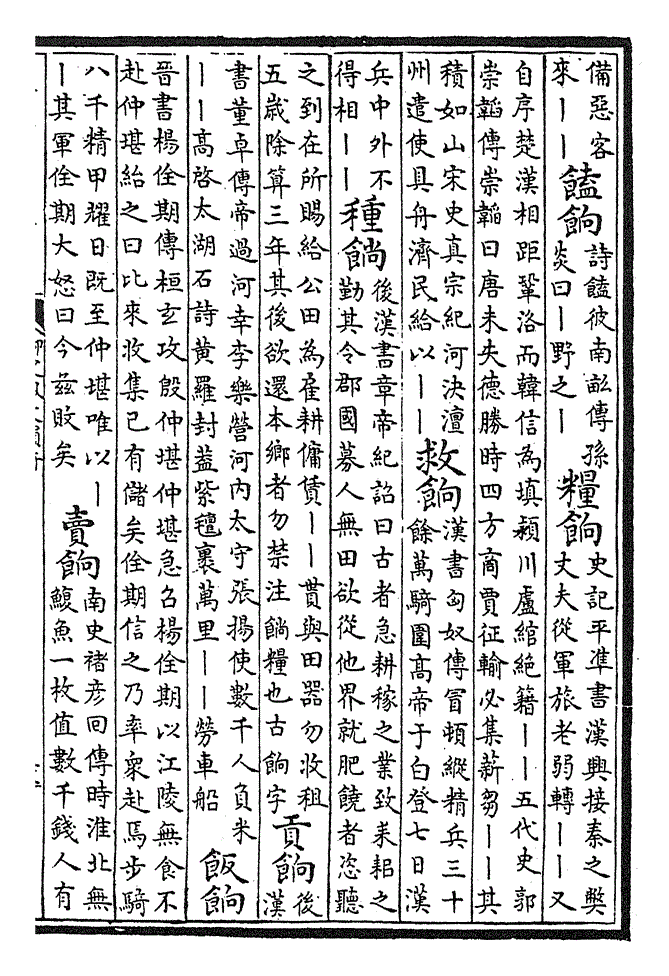 備惡客
來｜｜
饁餉
詩饁彼南畝傳孫
炎曰｜野之｜
糧餉
史記平準書漢興接秦之獘
丈夫從軍旅老弱轉｜｜又
自序楚漢相距鞏洛而韓信為填潁川盧綰絕籍｜｜五代史郭
崇韜傳崇韜曰唐未失德勝時四方商賈征輸必集薪芻｜｜其
積如山宋史真宗紀河決澶
州遣使具舟濟民給以｜｜
救餉
漢書匈奴傳冒頓縱精兵三十
餘萬騎圍高帝于白登七日漢
兵中外不
得相｜｜
種餉
後漢書章帝紀詔曰古者急耕稼之業致耒耜之
勤其令郡國募人無田欲從他界就肥饒者恣聽
之到在所賜給公田為雇耕傭賃｜｜貰與田器勿收租
五歲除算三年其後欲還本鄉者勿禁注餉糧也古餉字
貢餉
後
漢
書董卓傳帝過河幸李樂營河內太守張揚使數千人負米
｜｜高啓太湖石詩黄羅封葢紫氊裹萬里｜｜勞車船
飯餉
晉書楊佺期傳桓玄攻殷仲堪仲堪急召楊佺期以江陵無食不
赴仲堪紿之曰比來收集已有儲矣佺期信之乃率衆赴焉步騎
八千精甲耀日既至仲堪唯以｜
｜其軍佺期大怒曰今兹敗矣
賣餉
南史禇彦回傳時淮北無
鰒魚一枚值數千錢人有